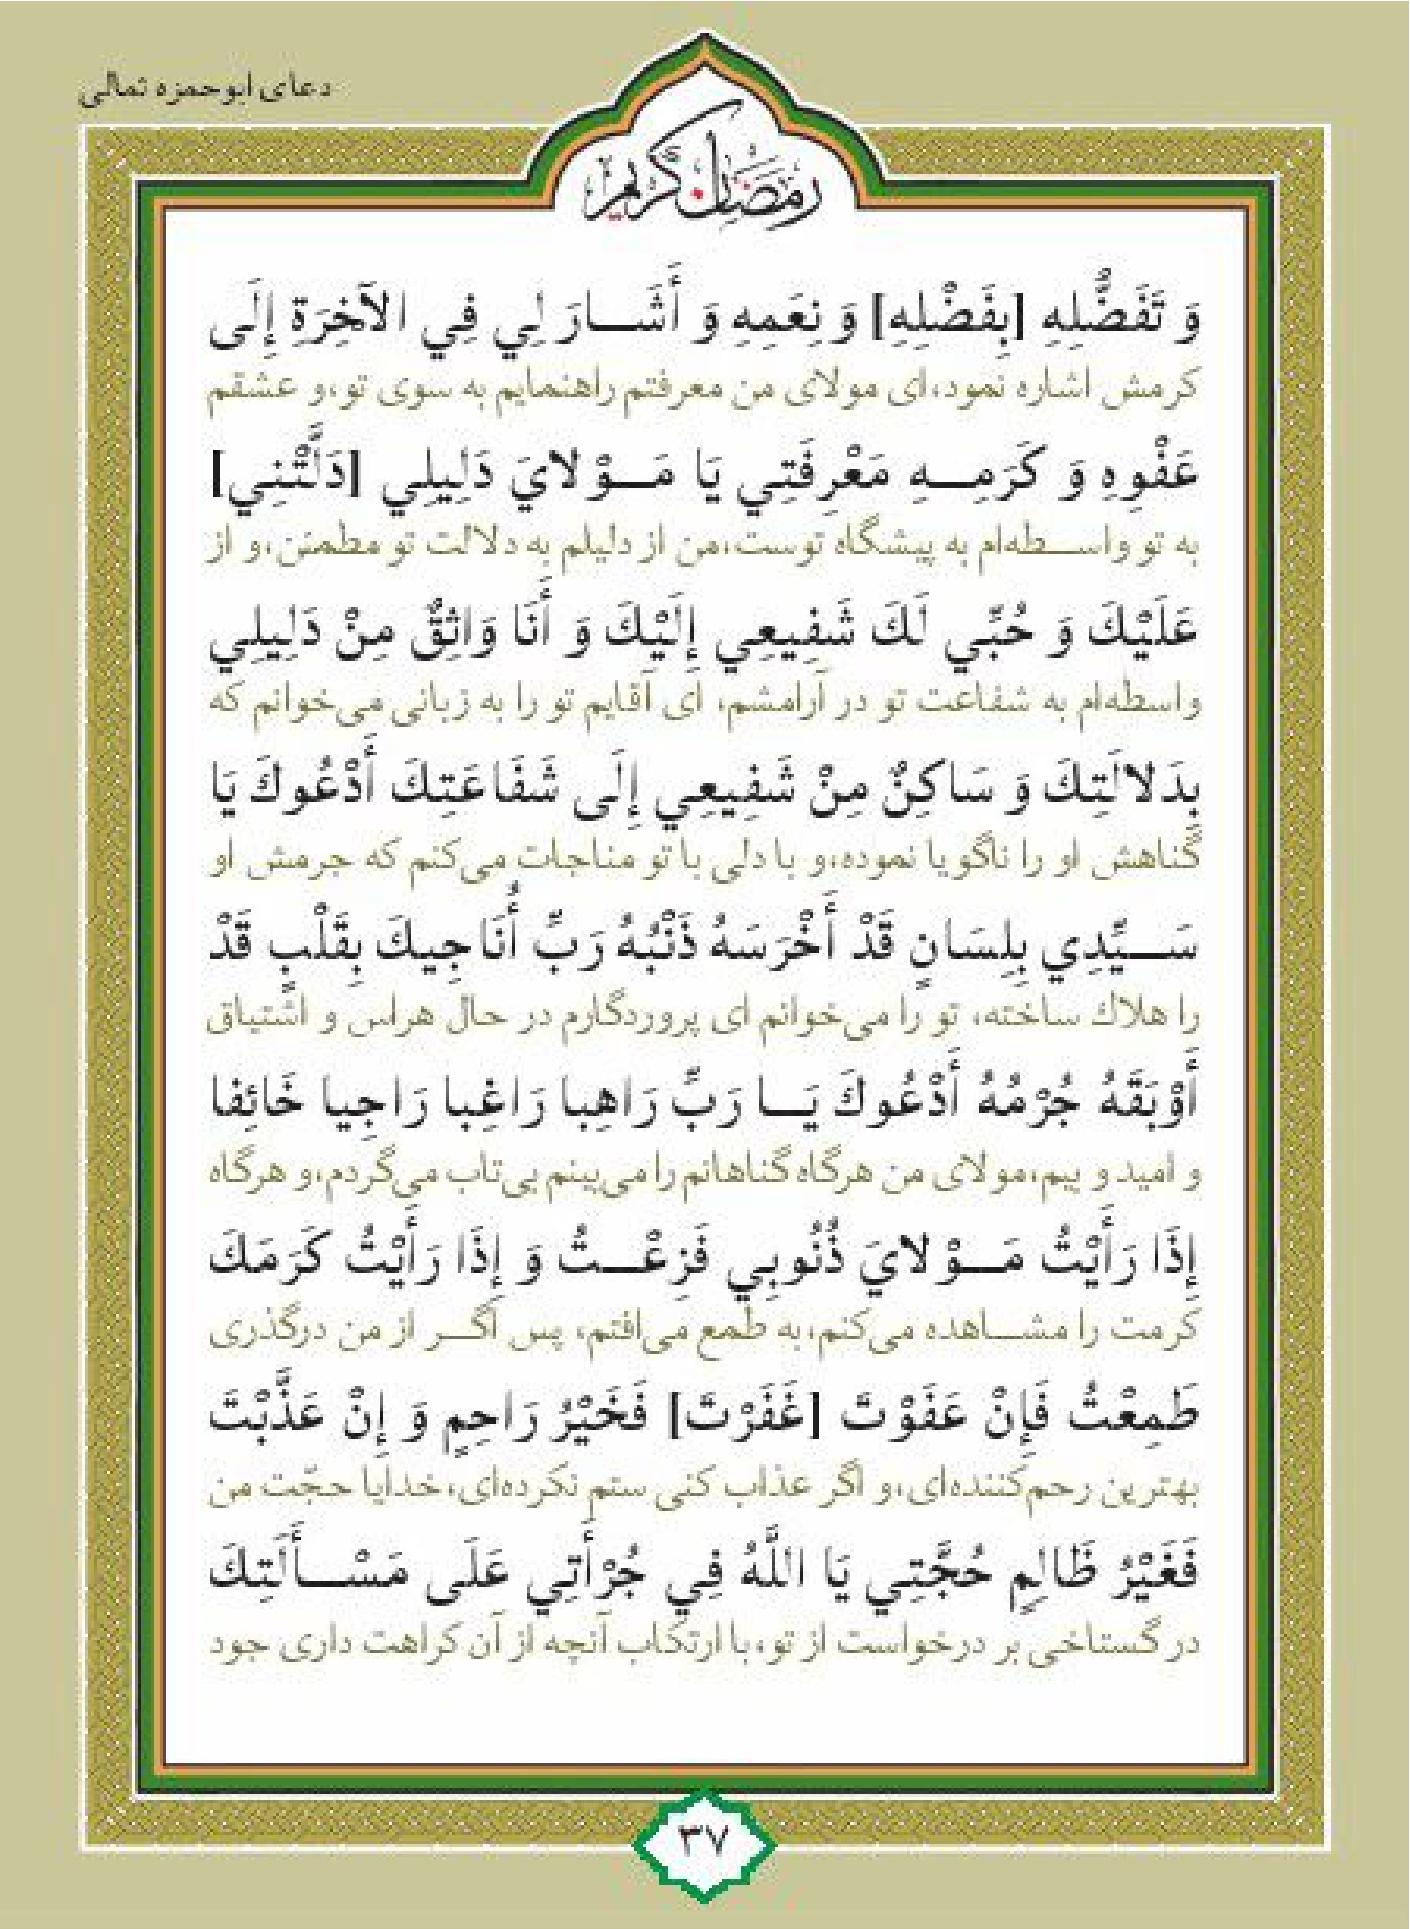 دعای ابوحمزه ثمالی
رمضان کریم
وَ تَفَضُّلِهِ [بِفَضْلِهِ] وَ نِعَمِهِ وَ أَشَارَ لِي فِي الآخِرَةِ إِلَى
کرمش اشاره نمود،ای مولای من معرفتم راهنمایم به سوی تو،و عشقم
عَفْوِهِ وَ كَرَمِهِ مَعْرِفَتِي يَا مَوْلايَ دَلِيلِي [دَلَّتْنِي]
به تو واسطه‌ام به پیشگاه توست،من از دلیلم به دلالت تو مطمئن،و از
عَلَيْكَ وَ حُبِّي لَكَ شَفِيعِي إِلَيْكَ وَ أَنَا وَاثِقٌ مِنْ دَلِيلِي
واسطه‌ام به شفاعت تو در آرامشم، ای آقایم تو را به زبانی می‌خوانم که
بِدَلالَتِكَ وَ سَاكِنٌ مِنْ شَفِيعِي إِلَى شَفَاعَتِكَ أَدْعُوكَ يَا
گناهش او را ناگویا نموده،و با دلی با تو مناجات می‌کنم که جرمش او
سَيِّدِي بِلِسَانٍ قَدْ أَخْرَسَهُ ذَنْبُهُ رَبِّ أُنَاجِيكَ بِقَلْبٍ قَدْ
را هلاك ساخته، تو را می‌خوانم ای پروردگارم در حال هراس و اشتیاق
أَوْبَقَهُ جُرْمُهُ أَدْعُوكَ يَا رَبِّ رَاهِبا رَاغِبا رَاجِيا خَائِفا
و امید و بیم،مولای من هرگاه گناهانم را می‌بینم بی‌تاب می‌گردم،و هرگاه
إِذَا رَأَيْتُ مَوْلايَ ذُنُوبِي فَزِعْتُ وَ إِذَا رَأَيْتُ كَرَمَكَ
کرمت را مشاهده می‌کنم،به طمع می‌افتم، پس اگر از من درگذری
طَمِعْتُ فَإِنْ عَفَوْتَ [غَفَرْتَ] فَخَيْرُ رَاحِمٍ وَ إِنْ عَذَّبْتَ
بهترین رحم‌کننده‌ای،و اگر عذاب کنی ستم نکرده‌ای،خدایا حجّت من
فَغَيْرُ ظَالِمٍ حُجَّتِي يَا اللَّهُ فِي جُرْأَتِي عَلَى مَسْأَلَتِكَ
در گستاخی بر درخواست از تو،با ارتکاب آنچه از آن کراهت داری جود
۳۷